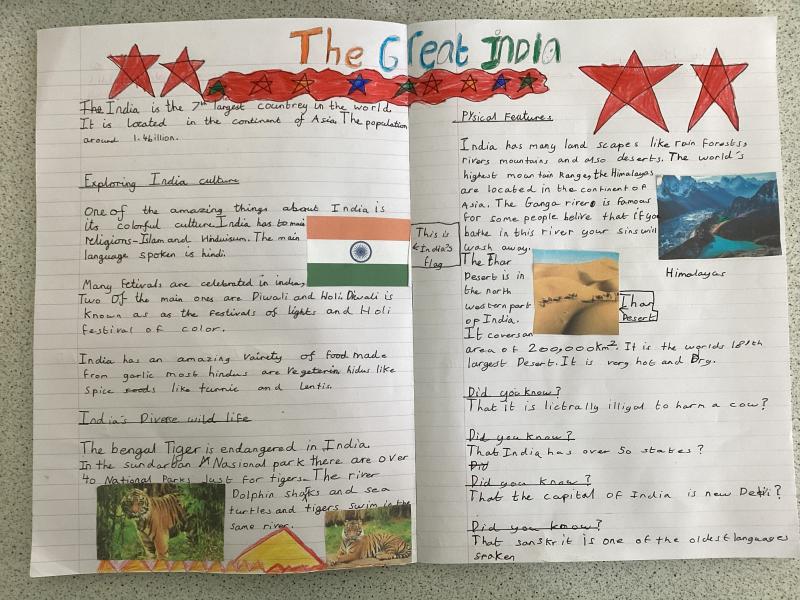 The Great India
The India is the 7th largest countrey in the world.
It is located in the continent of Asia. The population
around 1.4billion.
Exploring India culture
One of the amazing things about India is
its colorful culture. India has to main
religions-Islam and Hinduisum. The main
language spoken is hindi.
Many fetivals are celebrated in india,
Two of the main ones are Diwali and Holi. Diwali is
known as as the festivals of lights and Holi
festival of color.
India has an amazing vairety of food made
from garlic most hindus are Vegeterin hidus like
spice seeds like turmic and lentis.
India's Diverse wild life
The bengal Tiger is endangered in India.
In the sundarban Nasional park there are over
40 National Parks Just for tigers. The river
Dolphin sharks and sea
turtles and tigers swim in the
same river.
This is
India's
flag
Pysical Features
India has many land scapes like rain forests,
rivers mountains and also deserts. The world's
highest mountain Range, the Himalayas
are located in the continent of
Asia. The Ganga rivero is famous
for some people belive that if you
bathe in this river your sins will
wash away.
Himalayas
The thar
Desert is in
the north
western part
of India.
It covers an
Thar
Desert
area of 200,000km². It is the worlds 18th
largest Desert. It is very hot and Dry.
Did you know?
That it is lictrally illigal to harm a cow?
Did you know?
That India has over 50 states?
Did
Did you know?
That the capital of India is new Delhi?
Did you know?
That sanskrit is one of the oldest languages
spoken